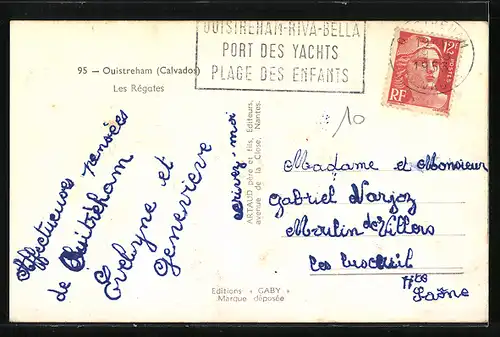 OUISTREHAM-RIVA-BELLA
PORT DES YACHTS
PLAGE DES ENFANTS
12F
POSTES
RF
95 — Ouistreham (Calvados)
Les Régates
10
Affectueuses pensées
de Ouitreham
Evelyne et
Genevieve
ecrivez-moi
ARTAUD père et fils, Editeurs,
avenue de la Close, Nantes.
Madame et Monsieur
Gabriel Narjoz
Moulin de Villers
Hte
Saône
Editions « GABY »
Marque déposée